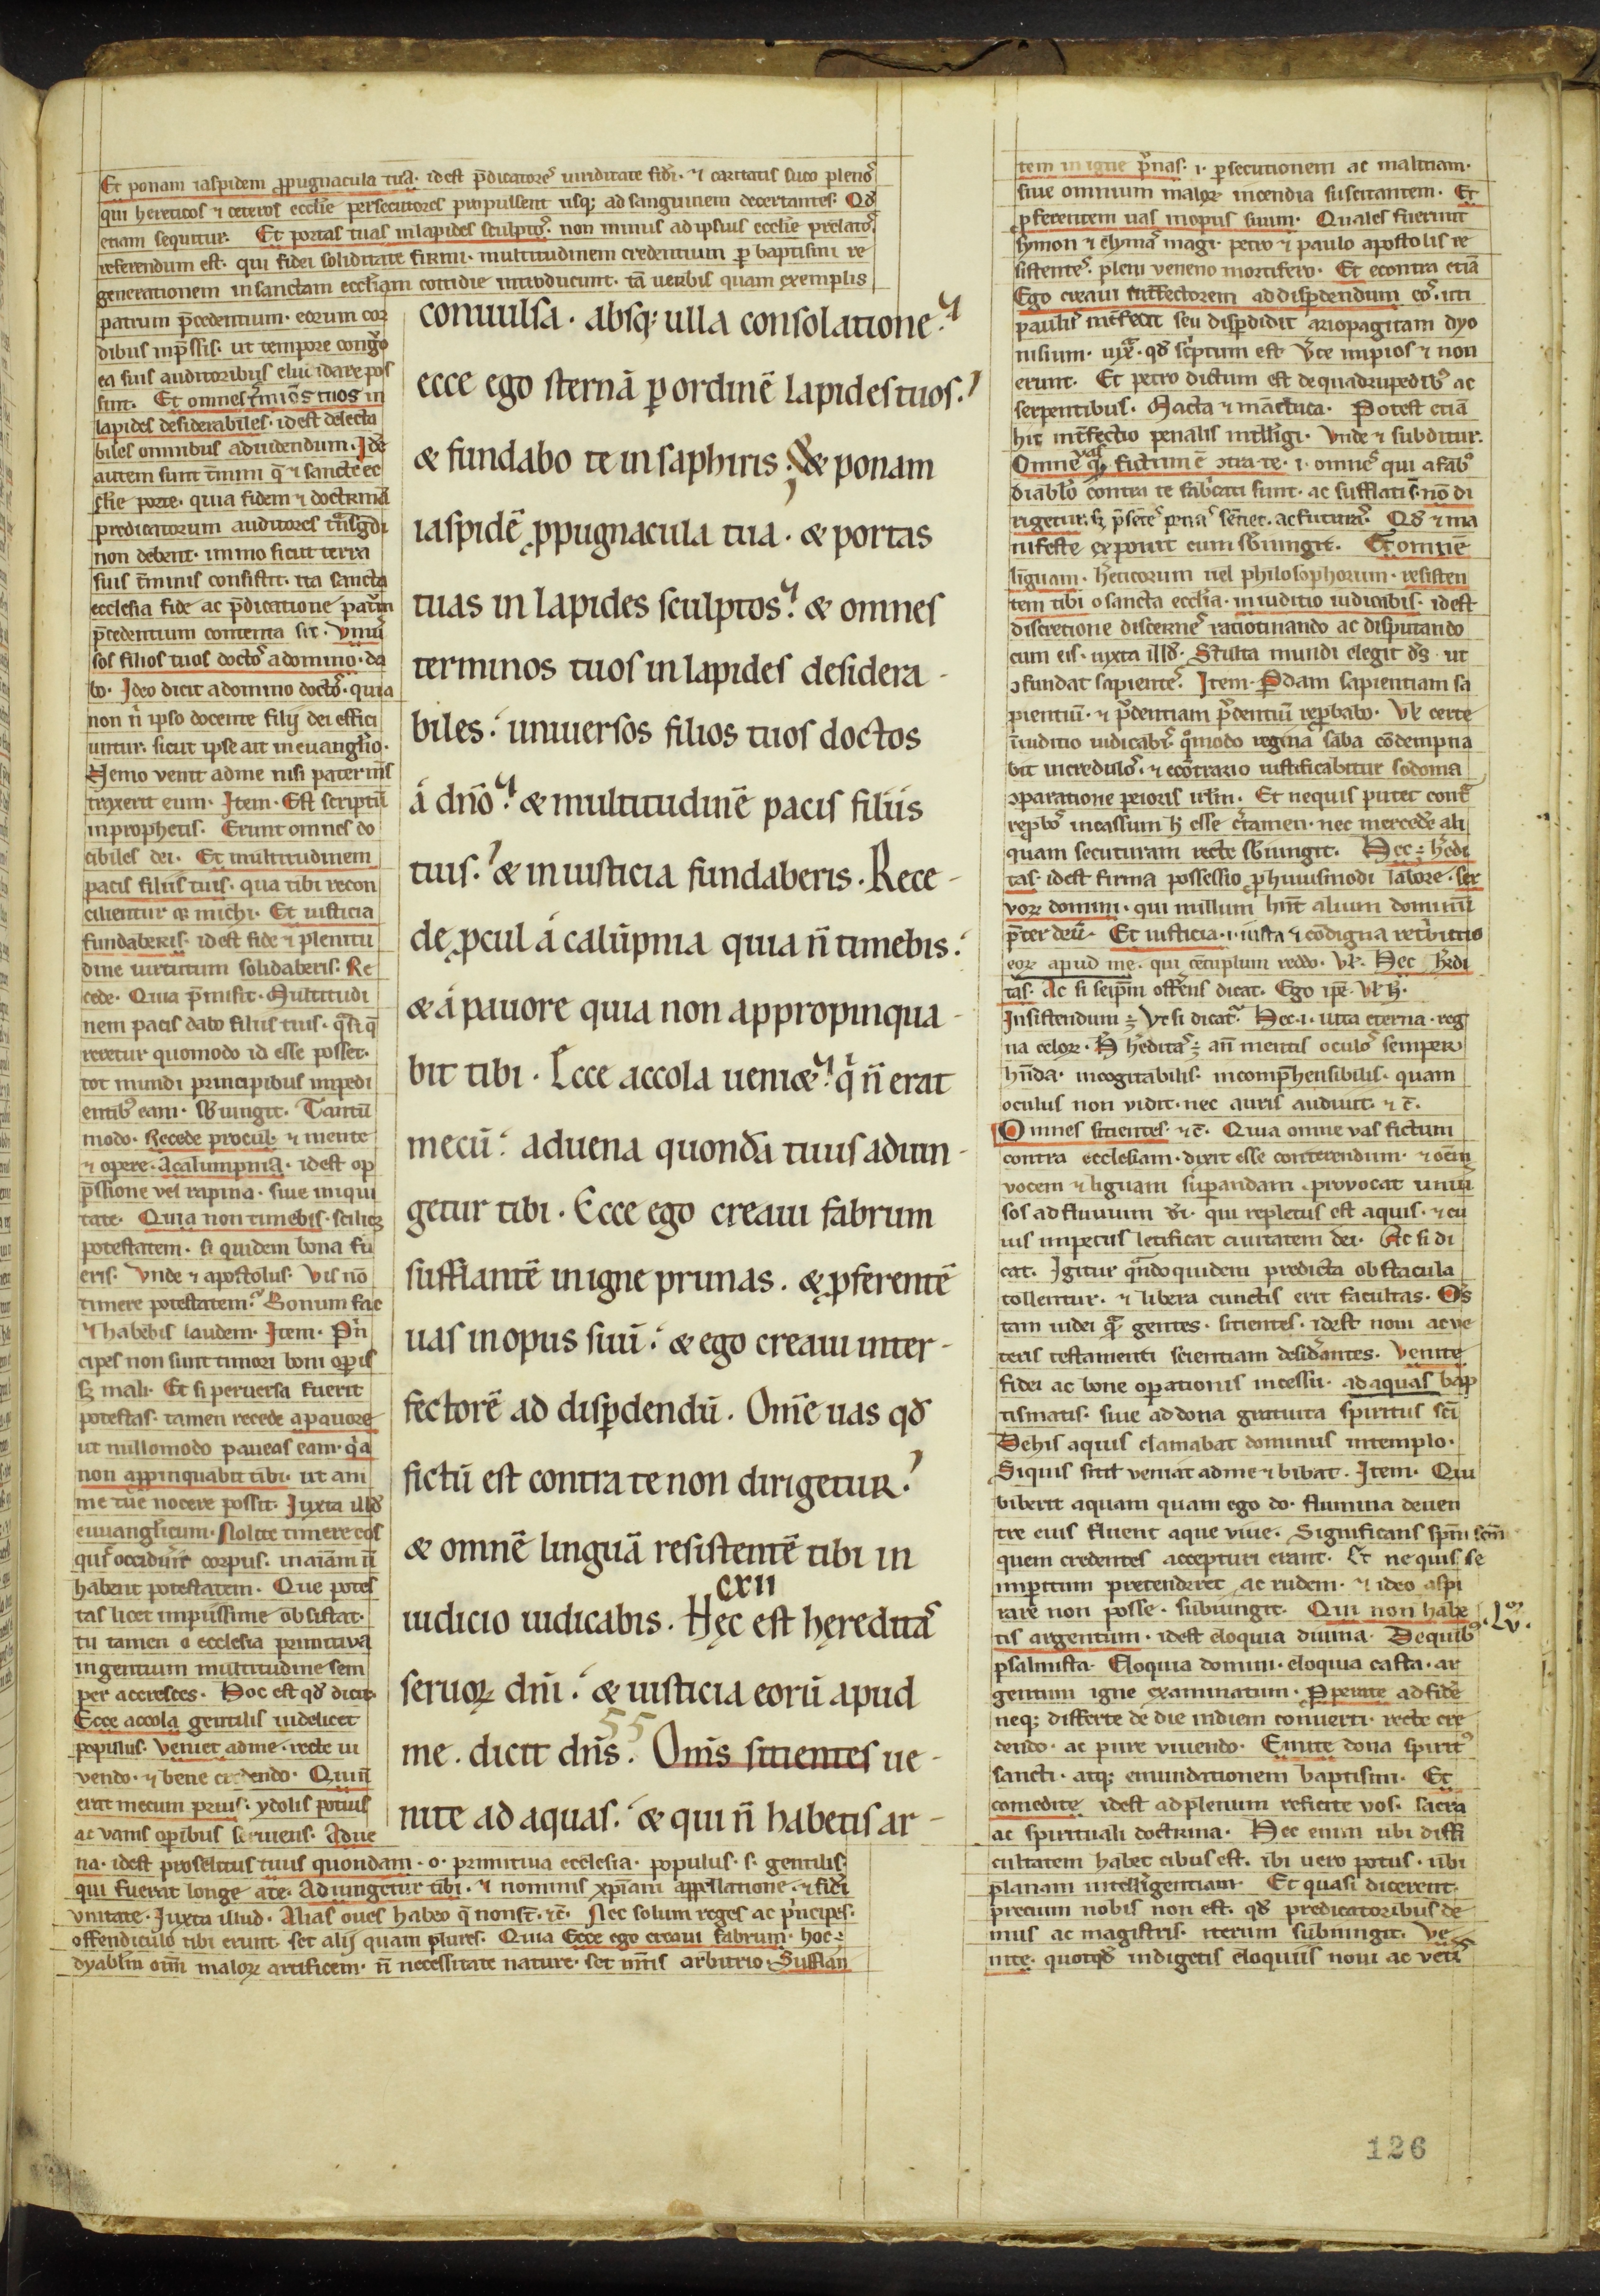 Et ponam iaspidem ꝓpugnacula tua. idest p̄dicatores uiriditate fidei. ⁊ caritatis suco plenos
qui hereticos ⁊ ceteros eccl̄ie persecutores propulsent usq; ad sanguinem decertantes. Qd̄
etiam sequitur. Et portas tuas in lapides sculptos. non minus ad ipsius eccl̄ie prelatos
referendum est. qui fidei soliditate firmi. multitudinem credentium ꝑ baptismi re
generationem in sanctam eccl̄iam cottidie introducunt. tā uerbis quam exemplis
patrum p̄cedentium. eorum cor
dibus inp̄ssis. ut tempore congruo
ea suis auditoribus elucidare pos
sint. Et omnes t̄minos tuos in
lapides desiderabiles. idest delecta
biles omnibus ad uidendum. Idē
autem sunt t̄mini q̄ ⁊ sancte ec
cl̄ie porte. quia fidem ⁊ doctrinā
predicatorum auditores tn̄sgredi
non debent. immo sicut terra
suis t̄minis consistit. ita sancta
ecclesia fide ac p̄dicatione patrum
p̄cedentium contenta sit. Vniu͛
sos filios tuos doctos a domino. da
bo. Ideo dicit a domino doctos. quia
non n̄ ipso docente filij dei effici
untur. sicut ipse ait in euangl̄io.
Nemo venit ad me nisi pater ms̄
traxerit eum. Item. Est scriptū
in prophetis. Erunt omnes do
cibiles dei. Et multitudinem
pacis filiis tuis. qua tibi recon
cilientur ⁊ michi. Et iusticia
fundaberis. idest fide ⁊ plenitu
dine uirtutum solidaberis. Re
cede. Quia p̄misit. Multitudi
nem pacis dabo filiis tuis. q̄si q̄
reretur quomodo id esse posset.
tot mundi principibus impedi
entib; eam. sb̄iungit. Tantū
modo. Recede procul. ⁊ mente
⁊ opere. a calumpnia. idest op
p̄ssione vel rapina. siue iniqui
tate. Quia non timebis. scilicꝫ
potestatem. si quidem bona fu
eris. Vnde ⁊ apostolus. Vis nō
timere potestatem? Bonum fac
⁊ habebis laudem. Item. Prin
cipes non sunt timori boni oꝑis
sꝫ mali. Et si peruersa fuerit
potestas. tamen recede a pauore
ut nullomodo paueas eam. qia
non apꝓpinquabit tibi. ut ani
me tue nocere possit. Iuxta illd̄
euuangl̄icum. Nolite timere eos
qui occidunt corpus. in aīam n̄
habent potestatem. Que potes
tas licet impiissime obsistat.
tu tamen o ecclesia primitiua
in gentium multitudine sem
per accresces. Hoc est qd̄ dicit.
Ecce accola gentilis uidelicet
populus. veniet ad me. recte ui
vendo. ⁊ bene credendo. Qui n̄
erat mecum prius. ydolis potius
ac vanis oꝑibus seruiens. Adue
na. idest proselitus tuus quondam. o. primitiua ecclesia. populus. s. gentilis.
qui fuerat longe a te. Adiungetur tibi. ⁊ nominis xp̄iani appellatione. ⁊ fidei
vnitate. Iuxta illud. Alias oues habeo q̄ non st̄. ⁊c̄. Nec solum reges ac principes.
offendiculo tibi erunt. set alij quam plures. Quia Ecce ego creaui fabrum. hoc ÷
dyabl̄m om̄ malorꝝ artificem. n̄ necessitate nature. set mētis arbitrio. Sufflan
conuulsa. absq; ulla consolatione.
ecce ego sternā ꝑ ordinē lapides tuos.
& fundabo te in saphiris. & ponam
iaspidē ꝓpugnacula tua. & portas
tuas in lapides sculptos. & omnes
terminos tuos in lapides desidera-
biles. uniuersos filios tuos doctos
á dn̄o. & multitudinē pacis filiis
tuis. & in iusticia fundaberis. Rece-
de ꝓcul á calūpnia quia n̄ timebis.
& á pauore quia non appropinqua-
bit tibi. Ecce accola ueniet. q̇ n̄ erat
mecū. aduena quondā tuus adiun-
getur tibi. Ecce ego creaui fabrum
sufflantē in igne prunas. & ꝓferentē
uas in opus suū. & ego creaui inter-
fectorē ad disꝑdendū. Om̄e uas qd̄
fictū est contra te non dirigetur.
& omnē linguā resistentē tibi in
cxii
iudicio iudicabis. Hęc est hęreditas
seruorꝝ dn̄i. & iusticia eorū apud
55
me. dicit dn̄s. Om̄s sitientes ue-
nite ad aquas. & qui n̄ habetis ar-
tem in igne prunas. i. ꝑsecutionem ac malitiam.
siue omnium malorꝝ incendia suscitantem. Et
ꝓferentem uas in opus suum. Quales fuerunt
symon ⁊ elymas magi. petro ⁊ paulo apostolis re
sistentes. pleni veneno mortifero. Et econtra etiā
Ego creaui int̄fectorem ad disꝑdendum eos. uti
paulus int̄fecit seu disꝑdidit ariopagitam dyo
nisium. iuxᵃ. qd̄ scriptum est v͛te impios ⁊ non
erunt. Et petro dictum est de quadrupedib; ac
serpentibus. Macta ⁊ māduca. Potest etiā
hic int̄fectio penalis intell̄igi. Vnde ⁊ subditur.
Omne uas qd̄ fictum ē ↄtra te. i. omnes qui a fab͛o
diabl̄o contra te fab͛cati sunt. ac sufflati. nō di
rigetur. sꝫ p̄sentes penas sētiet. ac futuras. Qd̄ ⁊ ma
nifeste exponit cum sb̄iungit. Et omnē
linguam. h͛eticorum uel philosophorum. resisten
tem tibi o sancta eccl̄ia. in iuditio iudicabis. idest
discretione discernes ratiotinando ac disputando
cum eis. iuxta illd̄. Stulta mundi elegit ds̄. ut
ↄfundat sapientes. Item. Perdam sapientiam sa
pientiū. ⁊ prudentiam prudentiū reprobabo. Vl̄ certe
in iuditio iudicabis. quomodo regina saba cōdempna
bit incredulos. ⁊ econtrario iustificabitur sodoma
ↄparatione peioris irl̄m. Et nequis putet contra
reprobos incassum h̄ esse c͛tamen. nec mercedē ali
quam secuturam recte sb̄iungit. Hec ÷ h͛edi
tas. idest firma possessio ꝓ huiusmodi labore. ser
vorꝝ domini. qui nullum hn̄t alium dominū
p̄ter deū. Et iusticia. i. iusta ⁊ cōdigna retributio
eorꝝ apud me. qui cētuplum reddo. Vl̄. Hec h͛edi
tas. Ac si seip̄m offerens dicat. Ego ip̄e. Vl̄ h̄.
Insistendum ÷ Vt si dicatur. Hec. i. uita eterna. reg
na celorꝝ. H̄ h͛editas ÷ an̄ mentis oculos semper
hn̄da. incogitabilis. incomp̄hensibilis. quam
oculus non vidit. nec auris audiuit. ⁊ c̄.
Omnes sitientes ⁊ c̄. Quia omne vas fictum
contra ecclesiam. dixit esse conterendum. ⁊ om̄ē
vocem ⁊ liguam suꝑandam. provocat uniu͛
sos ad fluuium d̄i. qui repletus est aquis. ⁊ cu
ius impetus letificat ciuitatem dei. Ac si di
cat. Igitur quandoquidem predicta obstacula
tollentur. ⁊ libera cunctis erit facultas. Os̄
tam iudei quam gentes. sitientes. idest noui ac ve
teris testamenti scientiam desid͛antes. Venite
fidei ac bone oꝑationis incessu. ad aquas bap
tismatis. siue ad dona gratuita spiritus sc̄i
De his aquis clamabat dominus in templo.
Siquis sitit veniat ad me ⁊ bibat. Item. Qui
biberit aquam quam ego do. flumina de uen
tre eius fluent aque viue. Significans sp̄m sc̄m
quem credentes accepturi erant. Et ne quis se
imꝑitum pretenderet ac rudem. ⁊ ideo aspi
rare non posse. subiungit. Qui non habe
tis argentum. idest eloquia diuina. De quib;
psalmista. Eloquia domini. eloquia casta. ar
gentum igne examinatum. Properate ad fidē
neq; differte de die in diem conuerti. recte cre
dendo. ac pure viuendo. Emite dona spirit͛
sancti. atq; emundationem baptismi. Et
comedite idest ad plenum reficite vos. sacra
ac spirituali doctrina. Hec enim ubi diffi
cultatem habet cibus est. ibi uero potus. ubi
planam intell̄igentiam. Et quasi dicerent.
precium nobis non est. qd̄ predicatoribus de
mus ac magistris. iterum subiungit. Ve
nite. quotqd̄ indigetis eloquiis noui ac vet͛is
Lv.
126